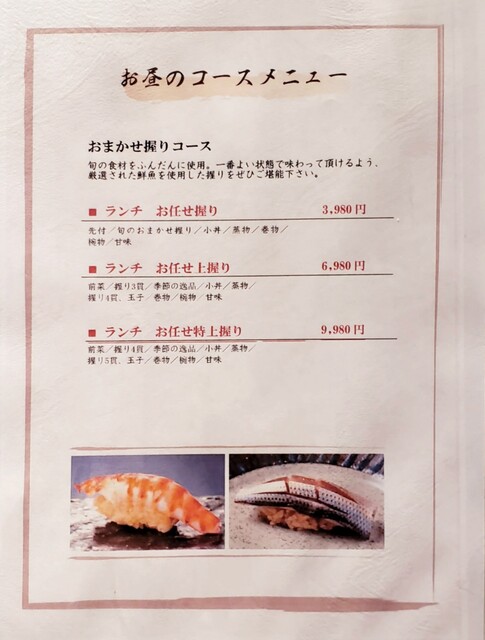 お昼のコースメニュー
おまかせ握りコース
旬の食材をふんだんに使用。一番よい状態で味わって頂けるよう、
厳選された鮮魚を使用した握りをぜひご堪能下さい。
■ ランチ　お任せ握り　3,980円
先付／旬のおまかせ握り／小丼／蒸物／巻物／
椀物／甘味
■ ランチ　お任せ上握り　6,980円
前菜／握り3貫／季節の逸品／小丼／蒸物／
握り4貫、玉子／巻物／椀物／甘味
■ ランチ　お任せ特上握り　9,980円
前菜／握り4貫／季節の逸品／小丼／蒸物／
握り5貫、玉子／巻物／椀物／甘味